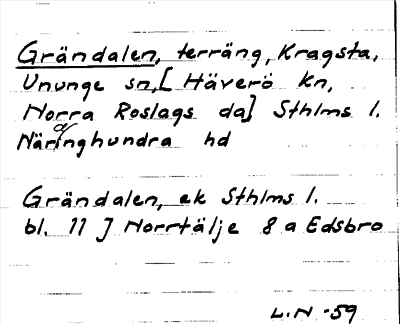 Grändalen, terräng, Kragsta,
Ununge sn,[Häverö kn,
Norra Roslags da] Sthlms l.
Näringhundra hd
Grändalen, ek Sthlms l.
bl. 11 J Norrtälje 8 a Edsbro
L.N -59